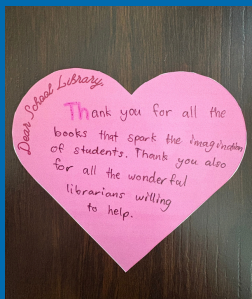 Dear School Library,
Thank you for all the
books that spark the imagination
of students. Thank you also
for all the wonderful
librarians willing
to help.